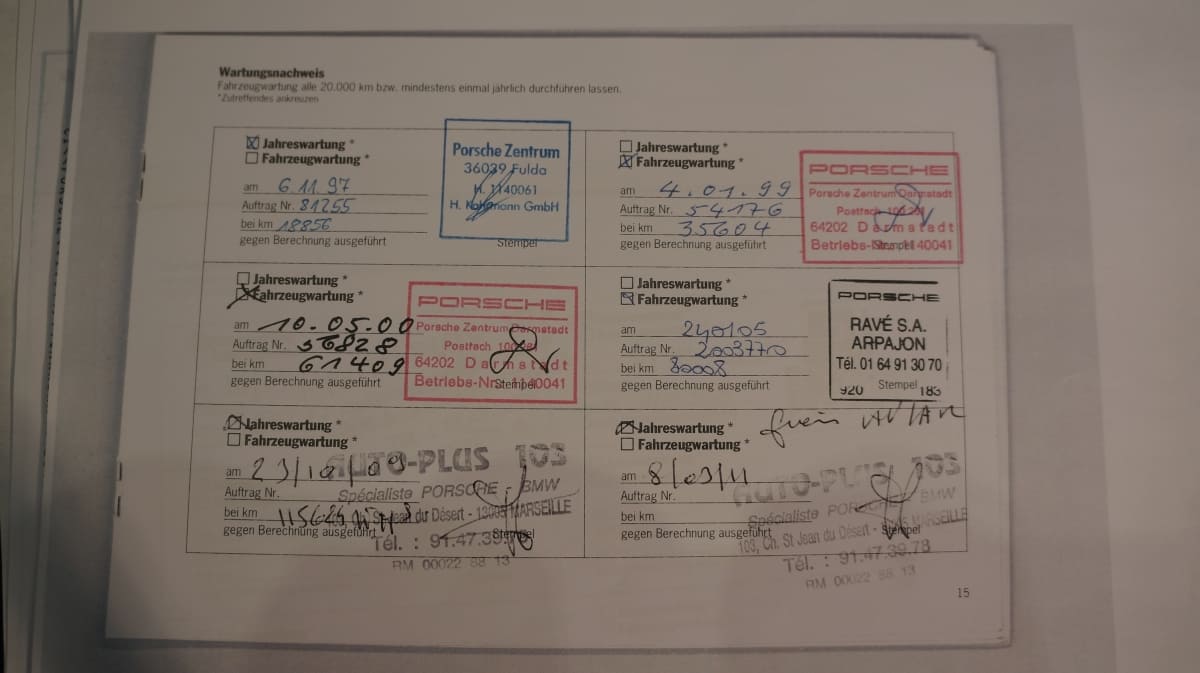 Wartungsnachweis
Fahrzeugwartung alle 20.000 km bzw. mindestens einmal jährlich durchführen lassen.
*Zutreffendes ankreuzen
Jahreswartung *
Fahrzeugwartung *
am 6.11.97
Auftrag Nr. 81255
bei km 18856
gegen Berechnung ausgeführt
Porsche Zentrum
36039 Fulda
GmbH
Stempel
Jahreswartung *
Fahrzeugwartung *
am 4.01.99
Auftrag Nr. 54176
bei km 35604
gegen Berechnung ausgeführt
PORSCHE
Porsche Zentrum Darmstadt
Postfach
64202 Darmstadt
40041
Stempel
Jahreswartung *
Fahrzeugwartung *
am 10.05.00
Auftrag Nr. 56828
bei km 61409
gegen Berechnung ausgeführt
PORSCHE
Porsche Zentrum Darmstadt
Postfach
64202 Darmstadt
Stempel
Jahreswartung *
Fahrzeugwartung *
am 240105
Auftrag Nr. 2003770
bei km 80008
gegen Berechnung ausgeführt
PORSCHE
RAVÉ S.A.
ARPAJON
Tél. 01 64 91 30 70
920 Stempel 183
Jahreswartung *
Fahrzeugwartung *
am 23/10/09
Auftrag Nr.
bei km
gegen Berechnung ausgeführt
AUTO-PLUS 103
Spécialiste PORSCHE - BMW
St Jean du Désert - MARSEILLE
Tél. : 91.47.39
Stempel
RM 00022 88 13
Jahreswartung *
Fahrzeugwartung *
am 8/03/11
Auftrag Nr.
bei km
gegen Berechnung ausgeführt
AUTO-PLUS 103
Spécialiste BMW
103, Ch. St Jean du Désert - MARSEILLE
Stempel
Tél. : 91.47.39.78
RM 00022 88 13
15